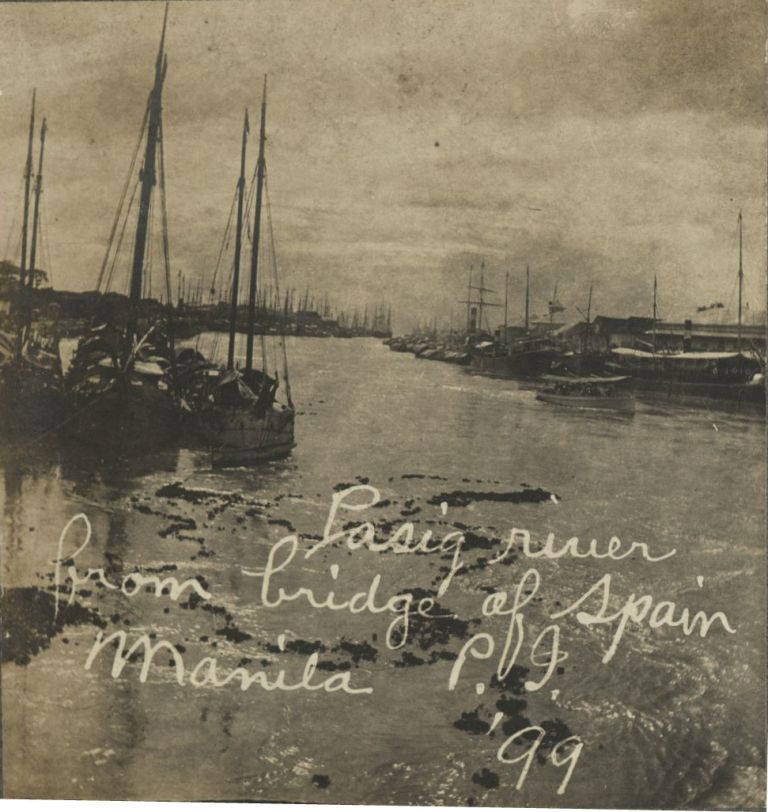 Pasig river
from bridge of Spain
Manila P. I.
'99